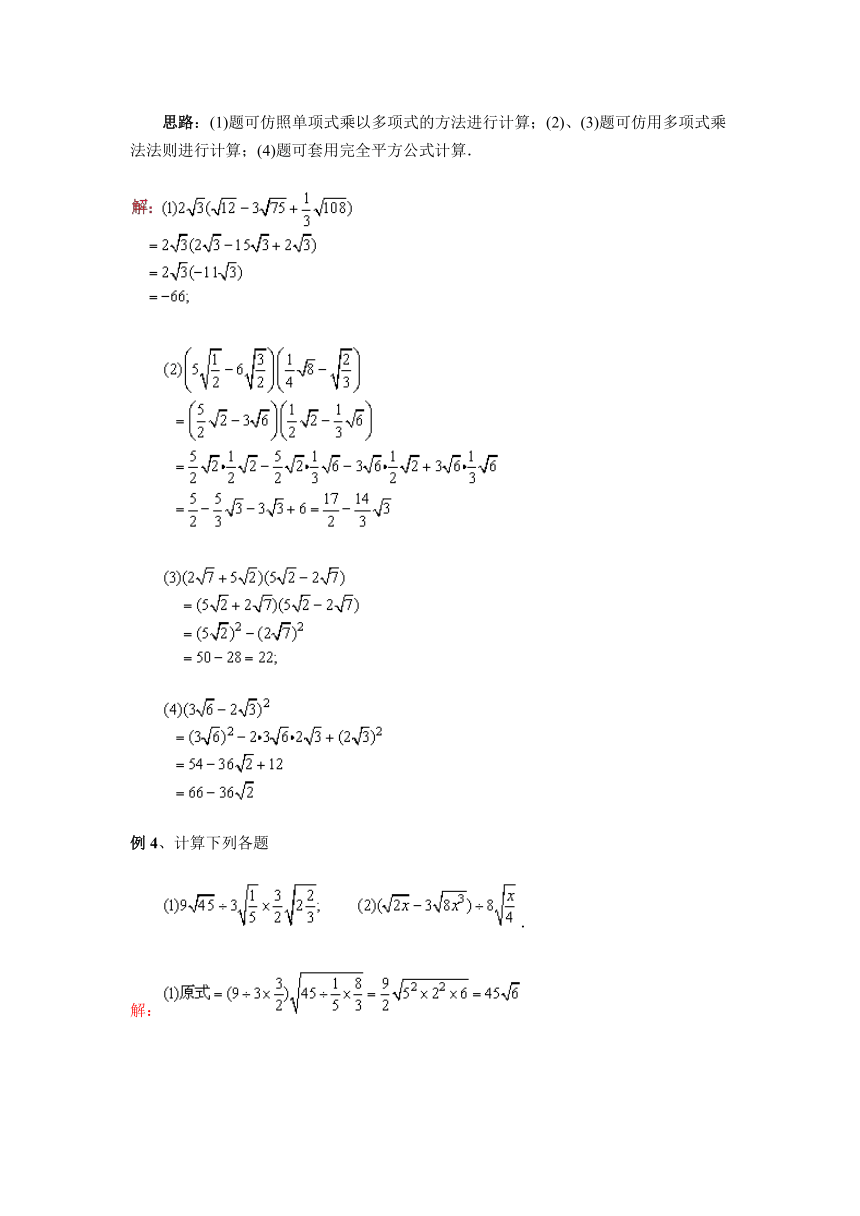 思路：(1)题可仿照单项式乘以多项式的方法进行计算；(2)、(3)题可仿用多项式乘
法法则进行计算；(4)题可套用完全平方公式计算．
解：(1)2√3(√12－3√75＋1/3√108)
＝2√3(2√3－15√3＋2√3)
＝2√3(－11√3)
＝－66;
(2)(5√(1/2)－6√(3/2))(1/4√8－√(2/3))
＝(5/2√2－3√6)(1/2√2－1/3√6)
＝5/2√2•1/2√2－5/2√2•1/3√6－3√6•1/2√2＋3√6•1/3√6
＝5/2－5/3√3－3√3＋6＝17/2－14/3√3
(3)(2√7＋5√2)(5√2－2√7)
＝(5√2＋2√7)(5√2－2√7)
＝(5√2)²－(2√7)²
＝50－28＝22;
(4)(3√6－2√3)²
＝(3√6)²－2•3√6•2√3＋(2√3)²
＝54－36√2＋12
＝66－36√2
例4、计算下列各题
(1)9√45÷3√(1/5)×3/2√(2 2/3); (2)(√(2x)－3√(8x³))÷8√(x/4)．
解：(1)原式＝(9÷3×3/2)√(45÷1/5×8/3)＝9/2√(5²×2²×6)＝45√6